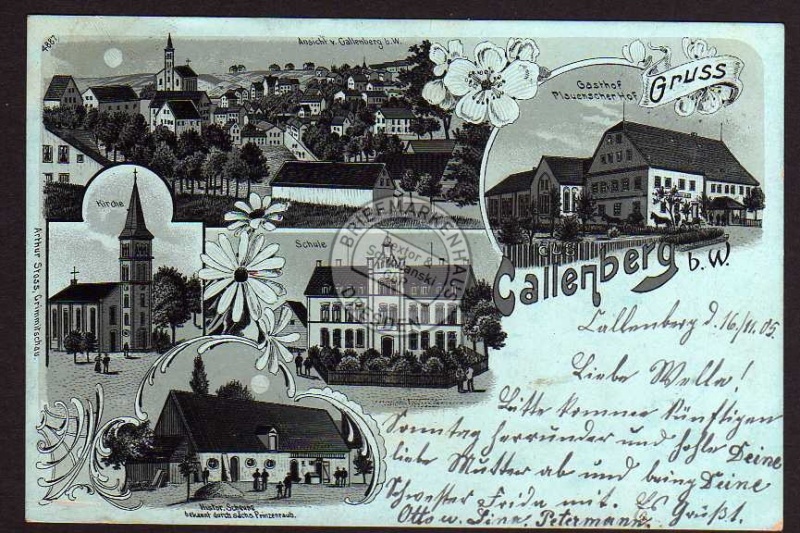 4887
Ansicht v. Callenberg b. W.
Gruss
Gasthof
Plauenscher Hof
Kirche
Schule
aus
Callenberg
b. W.
BRIEFMARKENHAUS
Dextor &
DRESDEN
Arthur Stoss, Crimmitschau.
Callenberg d. 16/11. 05
Liebe Wella!
Bitte komme künftigen
Sonntag herrunder und hohle Deine
liebe Mutter ab und bring Deine
Schwester Frida mit. Es Grüßt.
Otto u. Lina. Petermann.
Histor. Scheune
bekannt durch sächs. Prinzenraub.